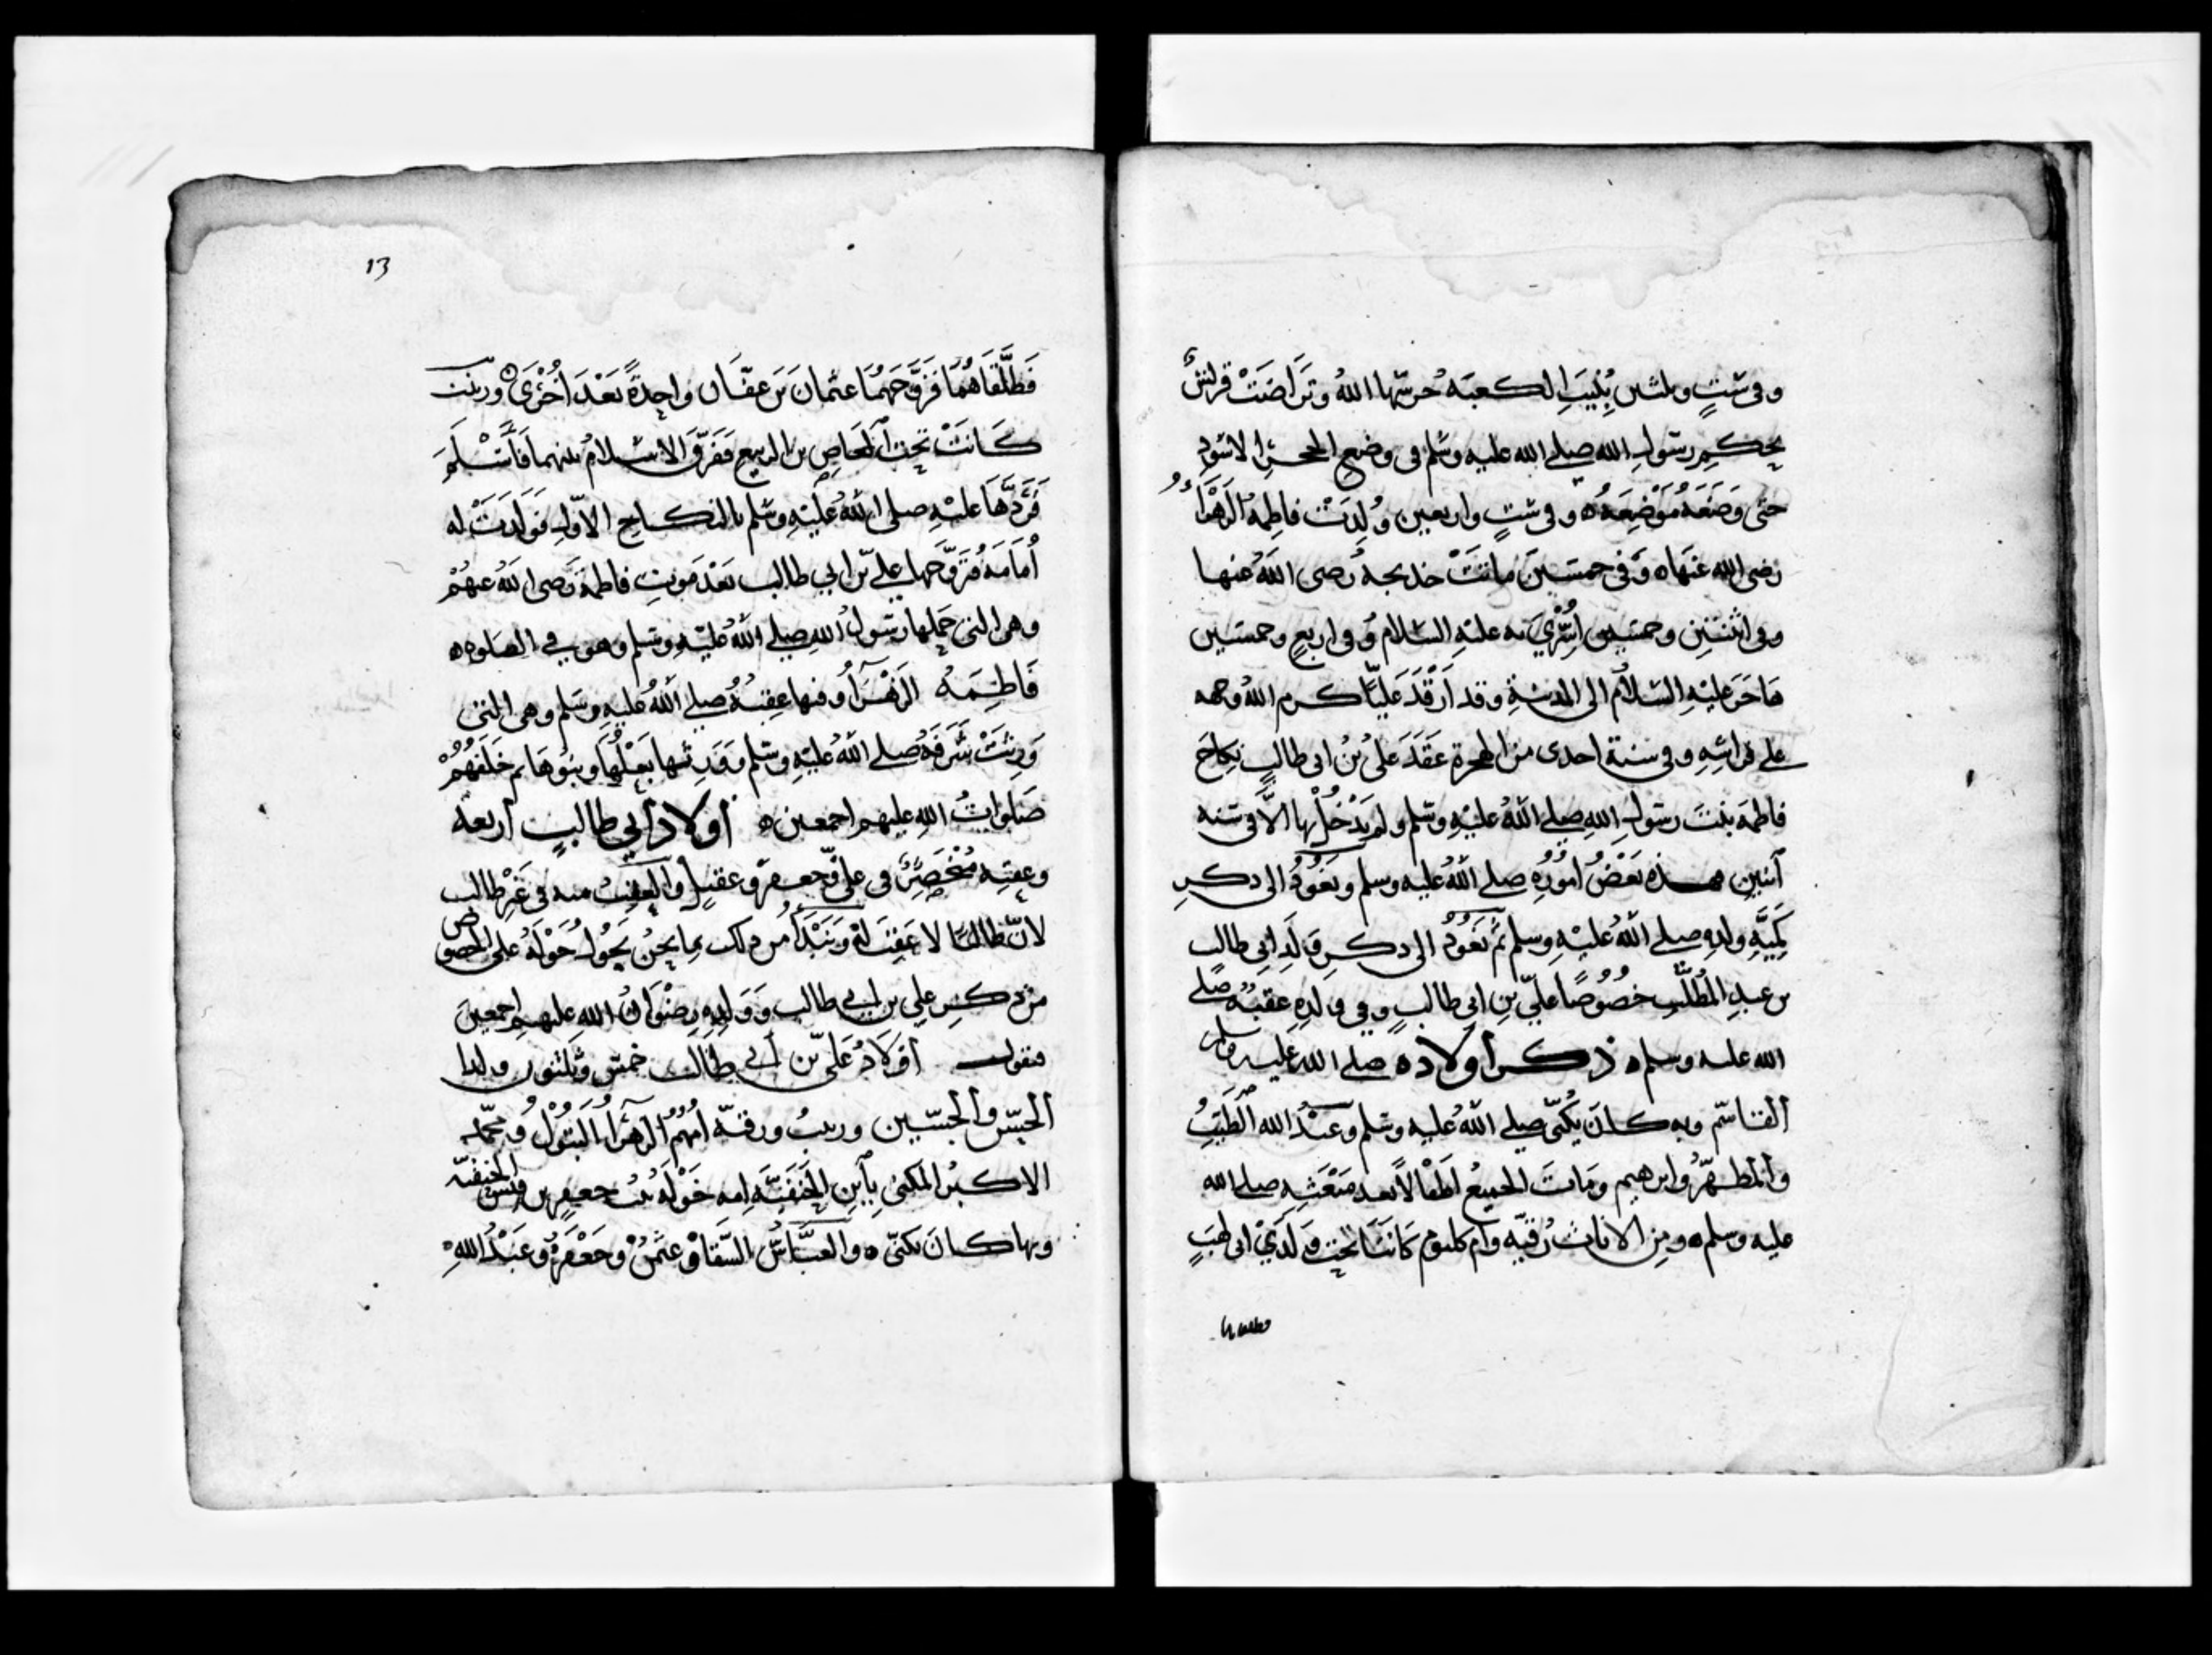 وفى ستٍ وثلثين بُنِيَتِ الكعبَة حرسها اللهُ وتَراضَتْ قريشٌ
بحكمِ رسولِ الله صلى الله عليه وسلم فى وضع الحجر الاسود
حتى وَضَعَهُ مَوْضِعَهُ ه وفى ستٍ واربعين وُلِدَتْ فاطمة الزهراءُ
رضى الله عنها ه وفى خمسين ماتتْ خديجة رضى اللهُ عنها
وفى اثنتين وخمسين اُسْرِيَ به عليه السلام وفى اربعٍ وخمسين
هاجَرَ عليهِ السلامُ الى المدينةِ وقد اَرْقَدَ عَليًّا كرم الله وجهه
على فراشِهِ وفى سنة احدى من الهجرة عَقَدَ علىُّ بنُ ابى طالبٍ نِكاحَ
فاطمة بنتَ رسولِ اللهِ صلى اللهُ عليهِ وسلم ولم يَدْخُلْ بها الّا فى سنه
اثنين هذه بَعْضُ اُمُورِهِ صلى اللهُ عليه وسلم ونَعُودُ الى ذكر
ولدِهِ صلى اللهُ عليهِ وسلم ثم نَعُودُ الى ذكرِ وَلَدِ ابى طالب
بن عبدِ المطّلب خُصُوصًا علىّ بنِ ابى طالبٍ وفى ولدِهِ عقبُهُ صلى
الله عليه وسلم ه ذكر أولاده صلى الله عليه وسلم
القاسم وبه كان يُكْنَى صلى اللهُ عليه وسلم وعبدُ الله الطيّبُ
والمطهّرُ وابرهيم ومَاتَ الجميعُ اَطفالاً بعد مَبْعَثِه صلى الله
عليه وسلم ه ومِن الاناث رُقيّة وام كلثوم كَانَتَا تحت وَلَدَيْ ابى لهبٍ
فطلقاهما
13
فَطَلَّقَاهُمَا فَزَوَّجَهُمَا عثمانَ بن عفّان واحدةً بَعْدَ اُخْرَى ه وزينب
كَانَتْ تحت العاصِ بن الربيع فَفَرَّقَ الاسلامُ بينهما فَاَسْلَمَ
فَرَدَّهَا عليْهِ صلى اللهُ عليْهِ وسلم بالنكاحِ الاوّلِ فَوَلَدَتْ له
اُمَامَة فَزَوَّجَها علىّ بن ابى طالب بَعْدَ مَوتِ فاطمة رَضى اللهُ عنهُمْ
وهى التى حَمَلها رسُولُ اللهِ صلى اللهُ عليْهِ وسلم وهو فى الصلوه ه
فَاطِمَة الزهْرَاءُ وفيها عقبُهُ صلى اللهُ عليهِ وسلم وهى التى
وَرِثَتْ شَرَفَهُ صلى اللهُ عليْهِ وسلم وَوَرِثها بَعْلُها وبنُوهَا ثم خَلَفُهُمْ
صَلواتُ اللهِ عليهم اجمعين ه أولاد أبى طالبٍ أربعة
وعقبه مُنْحَصِرٌ فى علىّ وجعفر وعقيل والعقب منه فى غَيْرِ طالب
لانّ طالبًا لا عَقِبَ لهُ ونَبْدَأُ من ذلك بما نحنُ نَحُولُ حَوْلَهُ على الخصوص
من ذكرِ على بن ابى طالب وَوَلَدِهِ رِضْوَانُ الله عليهم اجمعين
فنقول أولادُ علىّ بن أبى طالب خمس وثلثون ولدا
الحسن والحسين وزينبُ ورقيّة اُمّهُم الزهرآءُ البَتُولُ ومحمّد
الاكبر المكنى بِابنِ الحَنَفِيَّه امه خَوْلَةُ بنت جعفرِ بن قيس الحنفيّه
وبها كانَ يكنّى ه والعبَّاسُ السَّقا وعثمنُ وجَعْفرٌ وعَبْدُ اللهِ